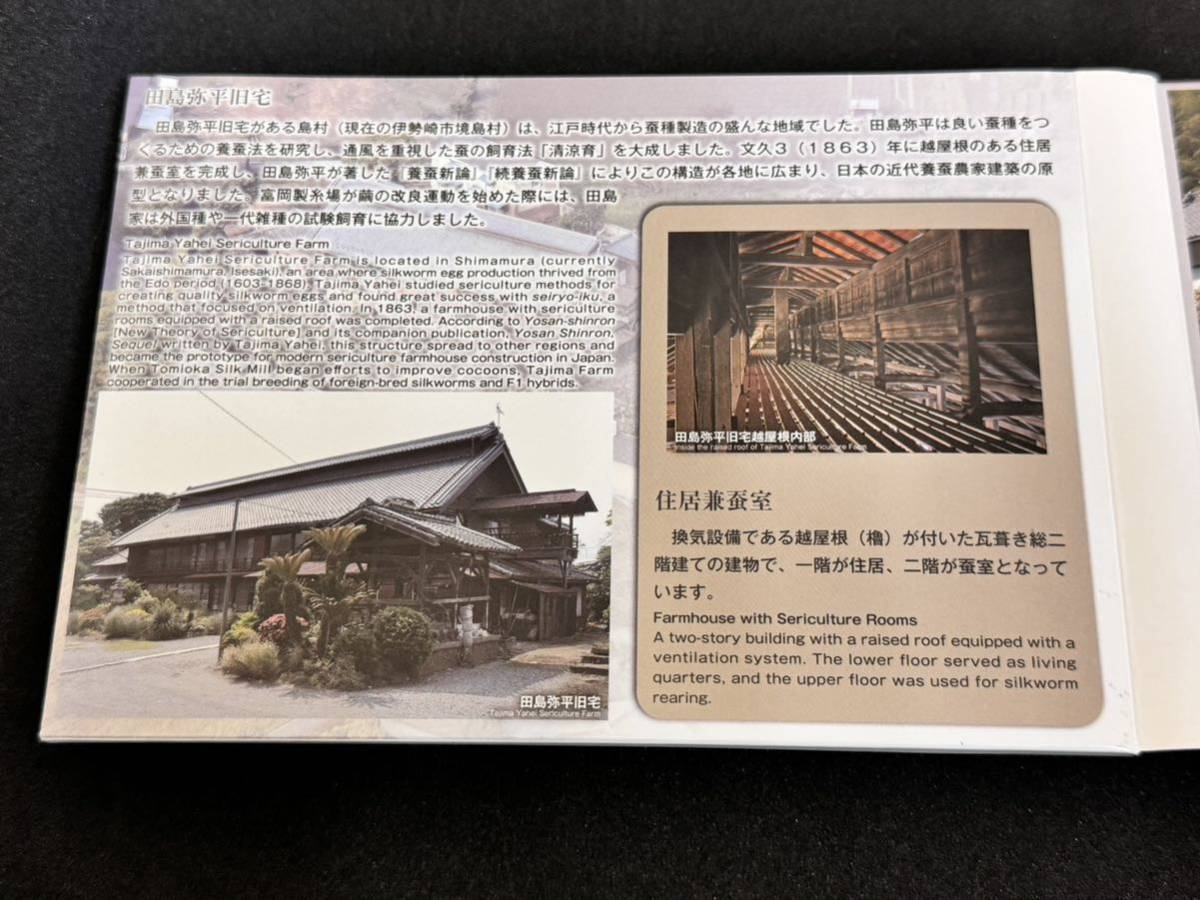 田島弥平旧宅
田島弥平旧宅がある島村（現在の伊勢崎市境島村）は、江戸時代から蚕種製造の盛んな地域でした。田島弥平は良い蚕種をつ
くるための養蚕法を研究し、通風を重視した蚕の飼育法「清涼育」を大成しました。文久3（1863）年に越屋根のある住居
兼蚕室を完成し、田島弥平が著した『養蚕新論』『続養蚕新論』によりこの構造が各地に広まり、日本の近代養蚕農家建築の原
型となりました。富岡製糸場が繭の改良運動を始めた際には、田島
家は外国種や一代雑種の試験飼育に協力しました。
Tajima Yahei Sericulture Farm
Tajima Yahei Sericulture Farm is located in Shimamura (currently
Sakaishimamura, Isesaki), an area where silkworm egg production thrived from
the Edo period (1603-1868). Tajima Yahei studied sericulture methods for
creating quality silkworm eggs and found great success with seiryo-iku, a
method that focused on ventilation. In 1863, a farmhouse with sericulture
rooms equipped with a raised roof was completed. According to Yosan-shinron
[New Theory of Sericulture] and its companion publication, Yosan Shinron,
Sequel written by Tajima Yahei, this structure spread to other regions and
became the prototype for modern sericulture farmhouse construction in Japan.
When Tomioka Silk Mill began efforts to improve cocoons, Tajima Farm
cooperated in the trial breeding of foreign-bred silkworms and F1 hybrids.
田島弥平旧宅
Tajima Yahei Sericulture Farm
田島弥平旧宅越屋根内部
Inside the raised roof of Tajima Yahei Sericulture Farm
住居兼蚕室
換気設備である越屋根（櫓）が付いた瓦葺き総二
階建ての建物で、一階が住居、二階が蚕室となって
います。
Farmhouse with Sericulture Rooms
A two-story building with a raised roof equipped with a
ventilation system. The lower floor served as living
quarters, and the upper floor was used for silkworm
rearing.